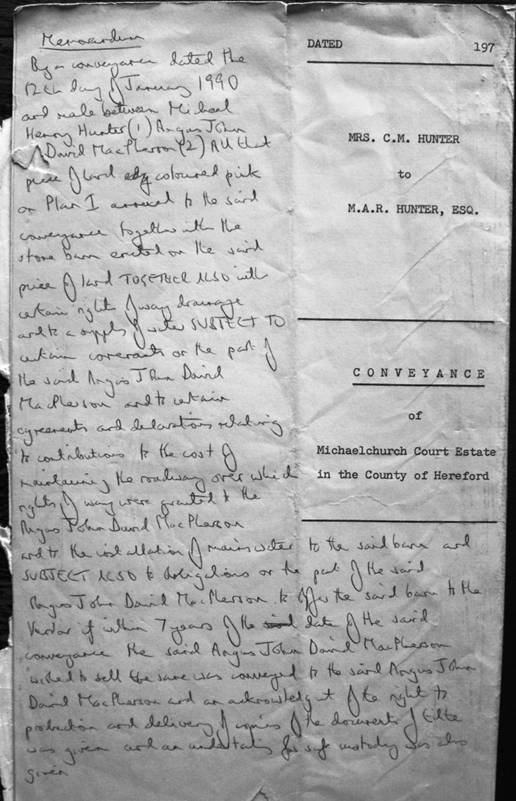 Memorandum
By a conveyance dated the
12th day of January 1990
and made between Michael
Henry Hunter (1) Angus John
David MacPherson (2) All that
piece of land edg coloured pink
on Plan I annexed to the said
conveyance together with the
stone barn erected on the said
piece of land TOGETHER ALSO with
certain rights of way drainage
and to a supply of water SUBJECT TO
certain covenants on the part of
the said Angus John David
MacPherson and to certain
agreements and declarations relating
to contributions to the cost of
maintaining the roadway over which
rights of way were granted to the
Angus John David MacPherson
and to the installation of mains water to the said barn and
SUBJECT ALSO to obligations on the part of the said
Angus John David MacPherson to offer the said barn to the
Vendor if within 7 years of the date of the said
conveyance the said Angus John David MacPherson
wished to sell the same was conveyed to the said Angus John
David MacPherson and an acknowledgmt of the right to
production and delivery of copies of the documents of title
was given and an undertaking for safe custody was also
given
DATED 197
MRS. C.M. HUNTER
to
M.A.R. HUNTER, ESQ.
CONVEYANCE
of
Michaelchurch Court Estate
in the County of Hereford